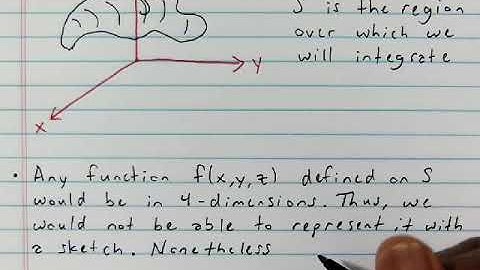 S is the region
over which we
will integrate
y
x
• Any function f(x,y,z) defined on S
would be in 4-dimensions. Thus, we
would not be able to represent it with
a sketch. Nonetheless